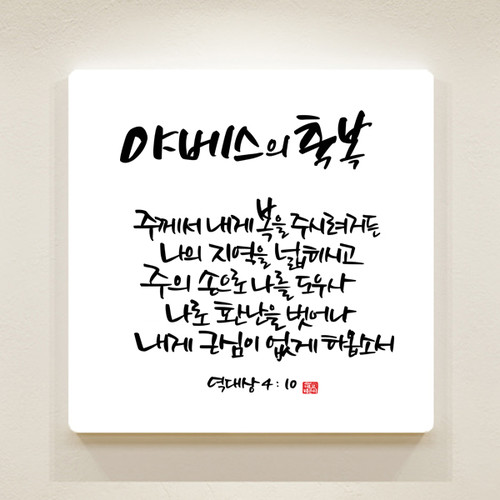 야베스의 축복
주께서 내게 복을 주시려거든
나의 지역을 넓히시고
주의 손으로 나를 도우사
나로 환난을 벗어나
내게 근심이 없게 하옵소서
역대상 4 : 10